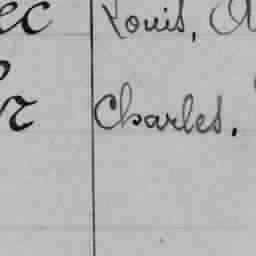 ec Louis,
Charles.